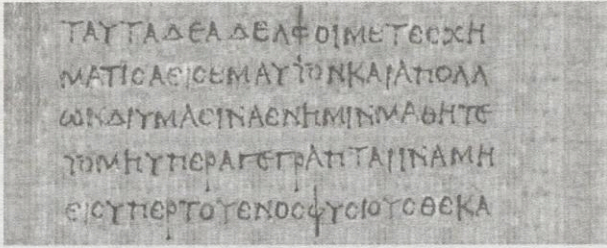 ΤΑΥΤΑΔΕΑΔΕΛΦΟΙΜΕΤΕϹΧΗ
ΜΑΤΙϹΑΕΙϹΕΜΑΥΤΟΝΚΑΙΑΠΟΛΛ
ΩΝΔΙΥΜΑϹΙΝΑΕΝΗΜΙΝΜΑΘΗΤΕ
ΤΟΜΗΥΠΕΡΑΓΕΓΡΑΠΤΑΙΙΝΑΜΗ
ΕΙϹΥΠΕΡΤΟΥΕΝΟϹΦΥϹΙΟΥϹΘΕΚΑ